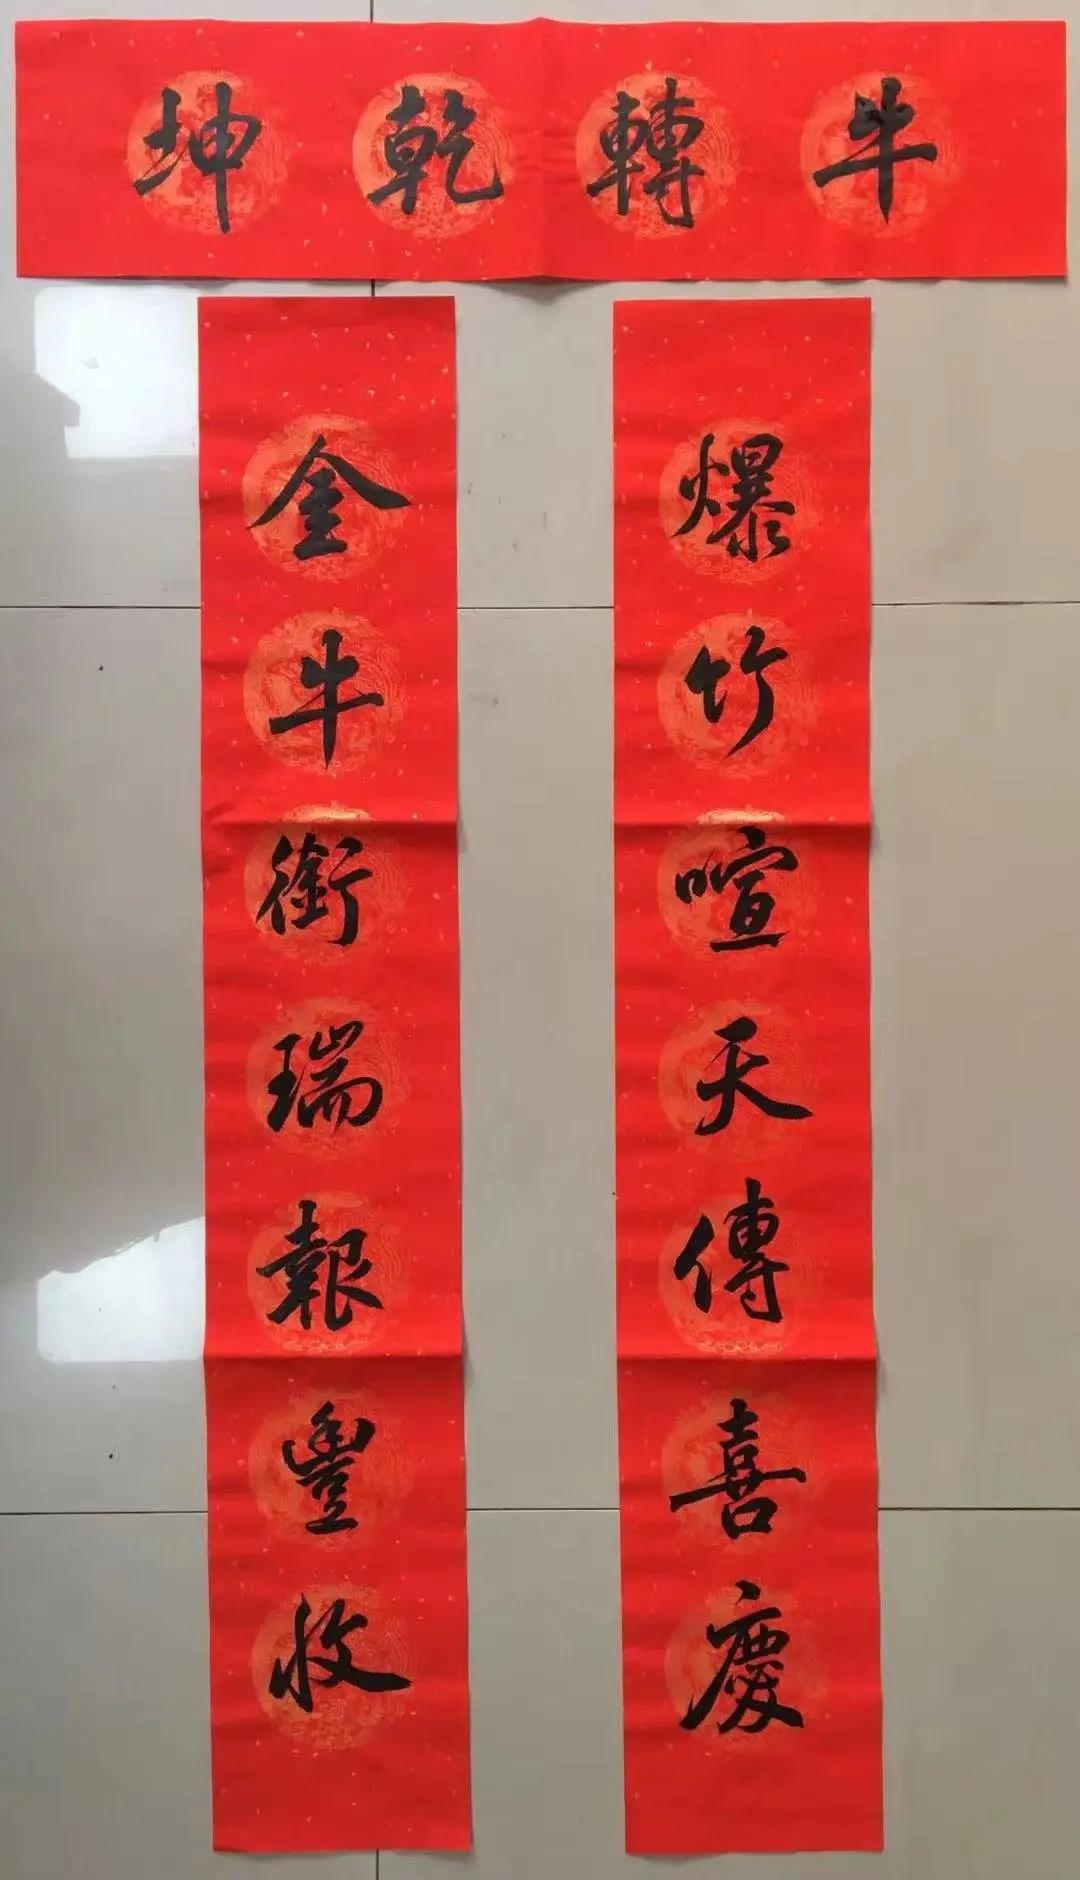 牛轉乾坤
爆竹喧天傳喜慶
金牛銜瑞報豐收